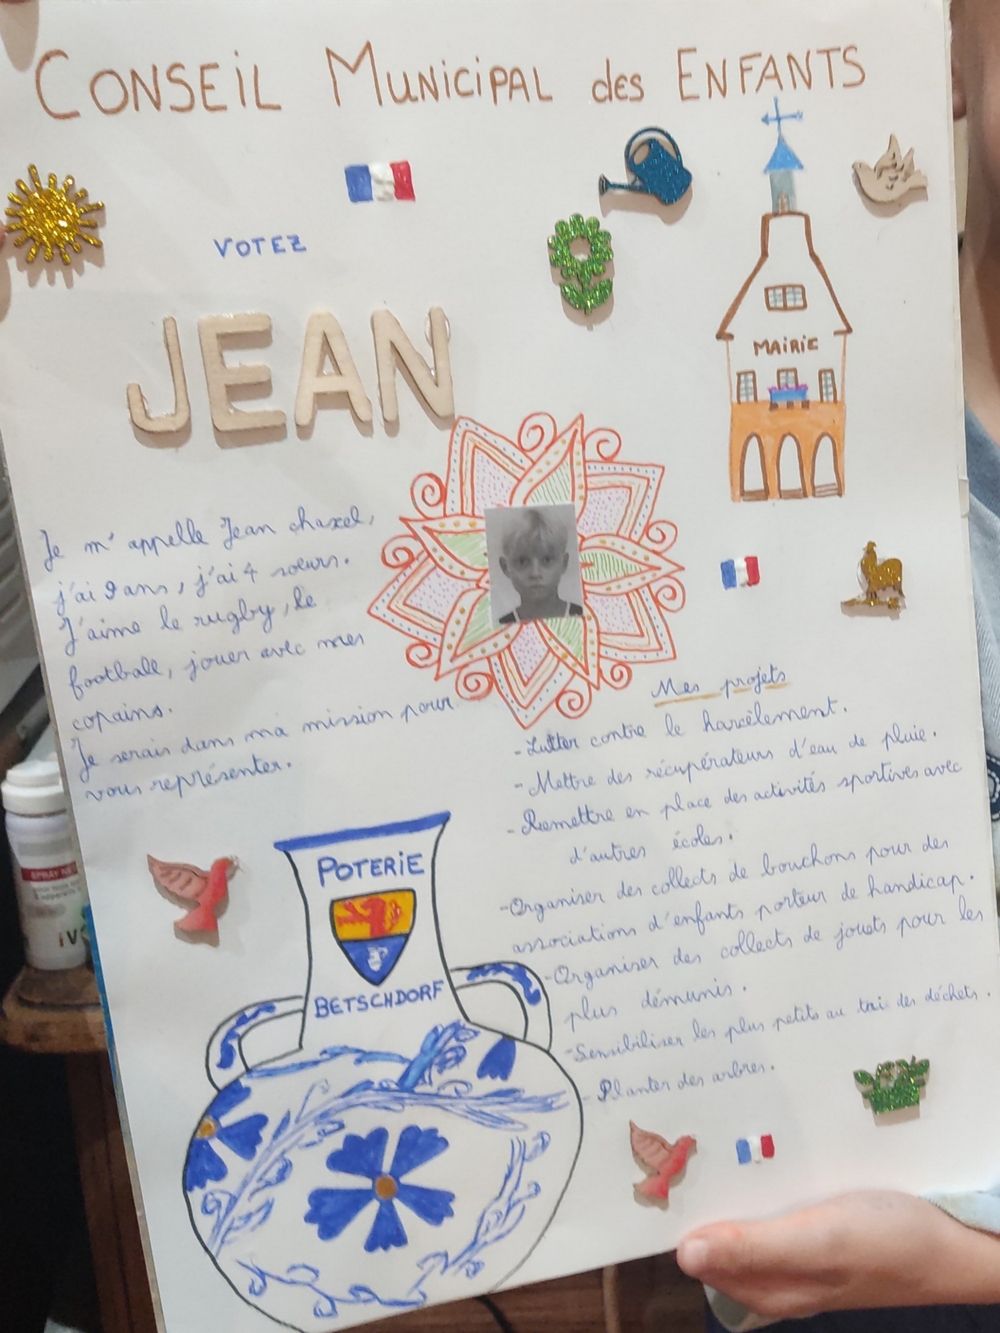 CONSEIL MUNICIPAL des ENFANTS
VOTEZ
JEAN
MAIRIE
Je m'appelle Jean chaxel,
j'ai 9 ans, j'ai 4 soeurs.
J'aime le rugby, le
football, jouer avec mes
copains.
Je serais dans ma mission pour
vous représenter.
Mes projets
- Lutter contre le harcèlement.
- Mettre des récupérateurs d'eau de pluie.
- Remettre en place des activités sportives avec
d'autres écoles.
- Organiser des collects de bouchons pour des
associations d'enfants porteur de handicap.
- Organiser des collects de jouets pour les
plus démunis.
- Sensibiliser les plus petits au tri des déchets.
- Planter des arbres.
POTERIE
BETSCHDORF
SPRAY